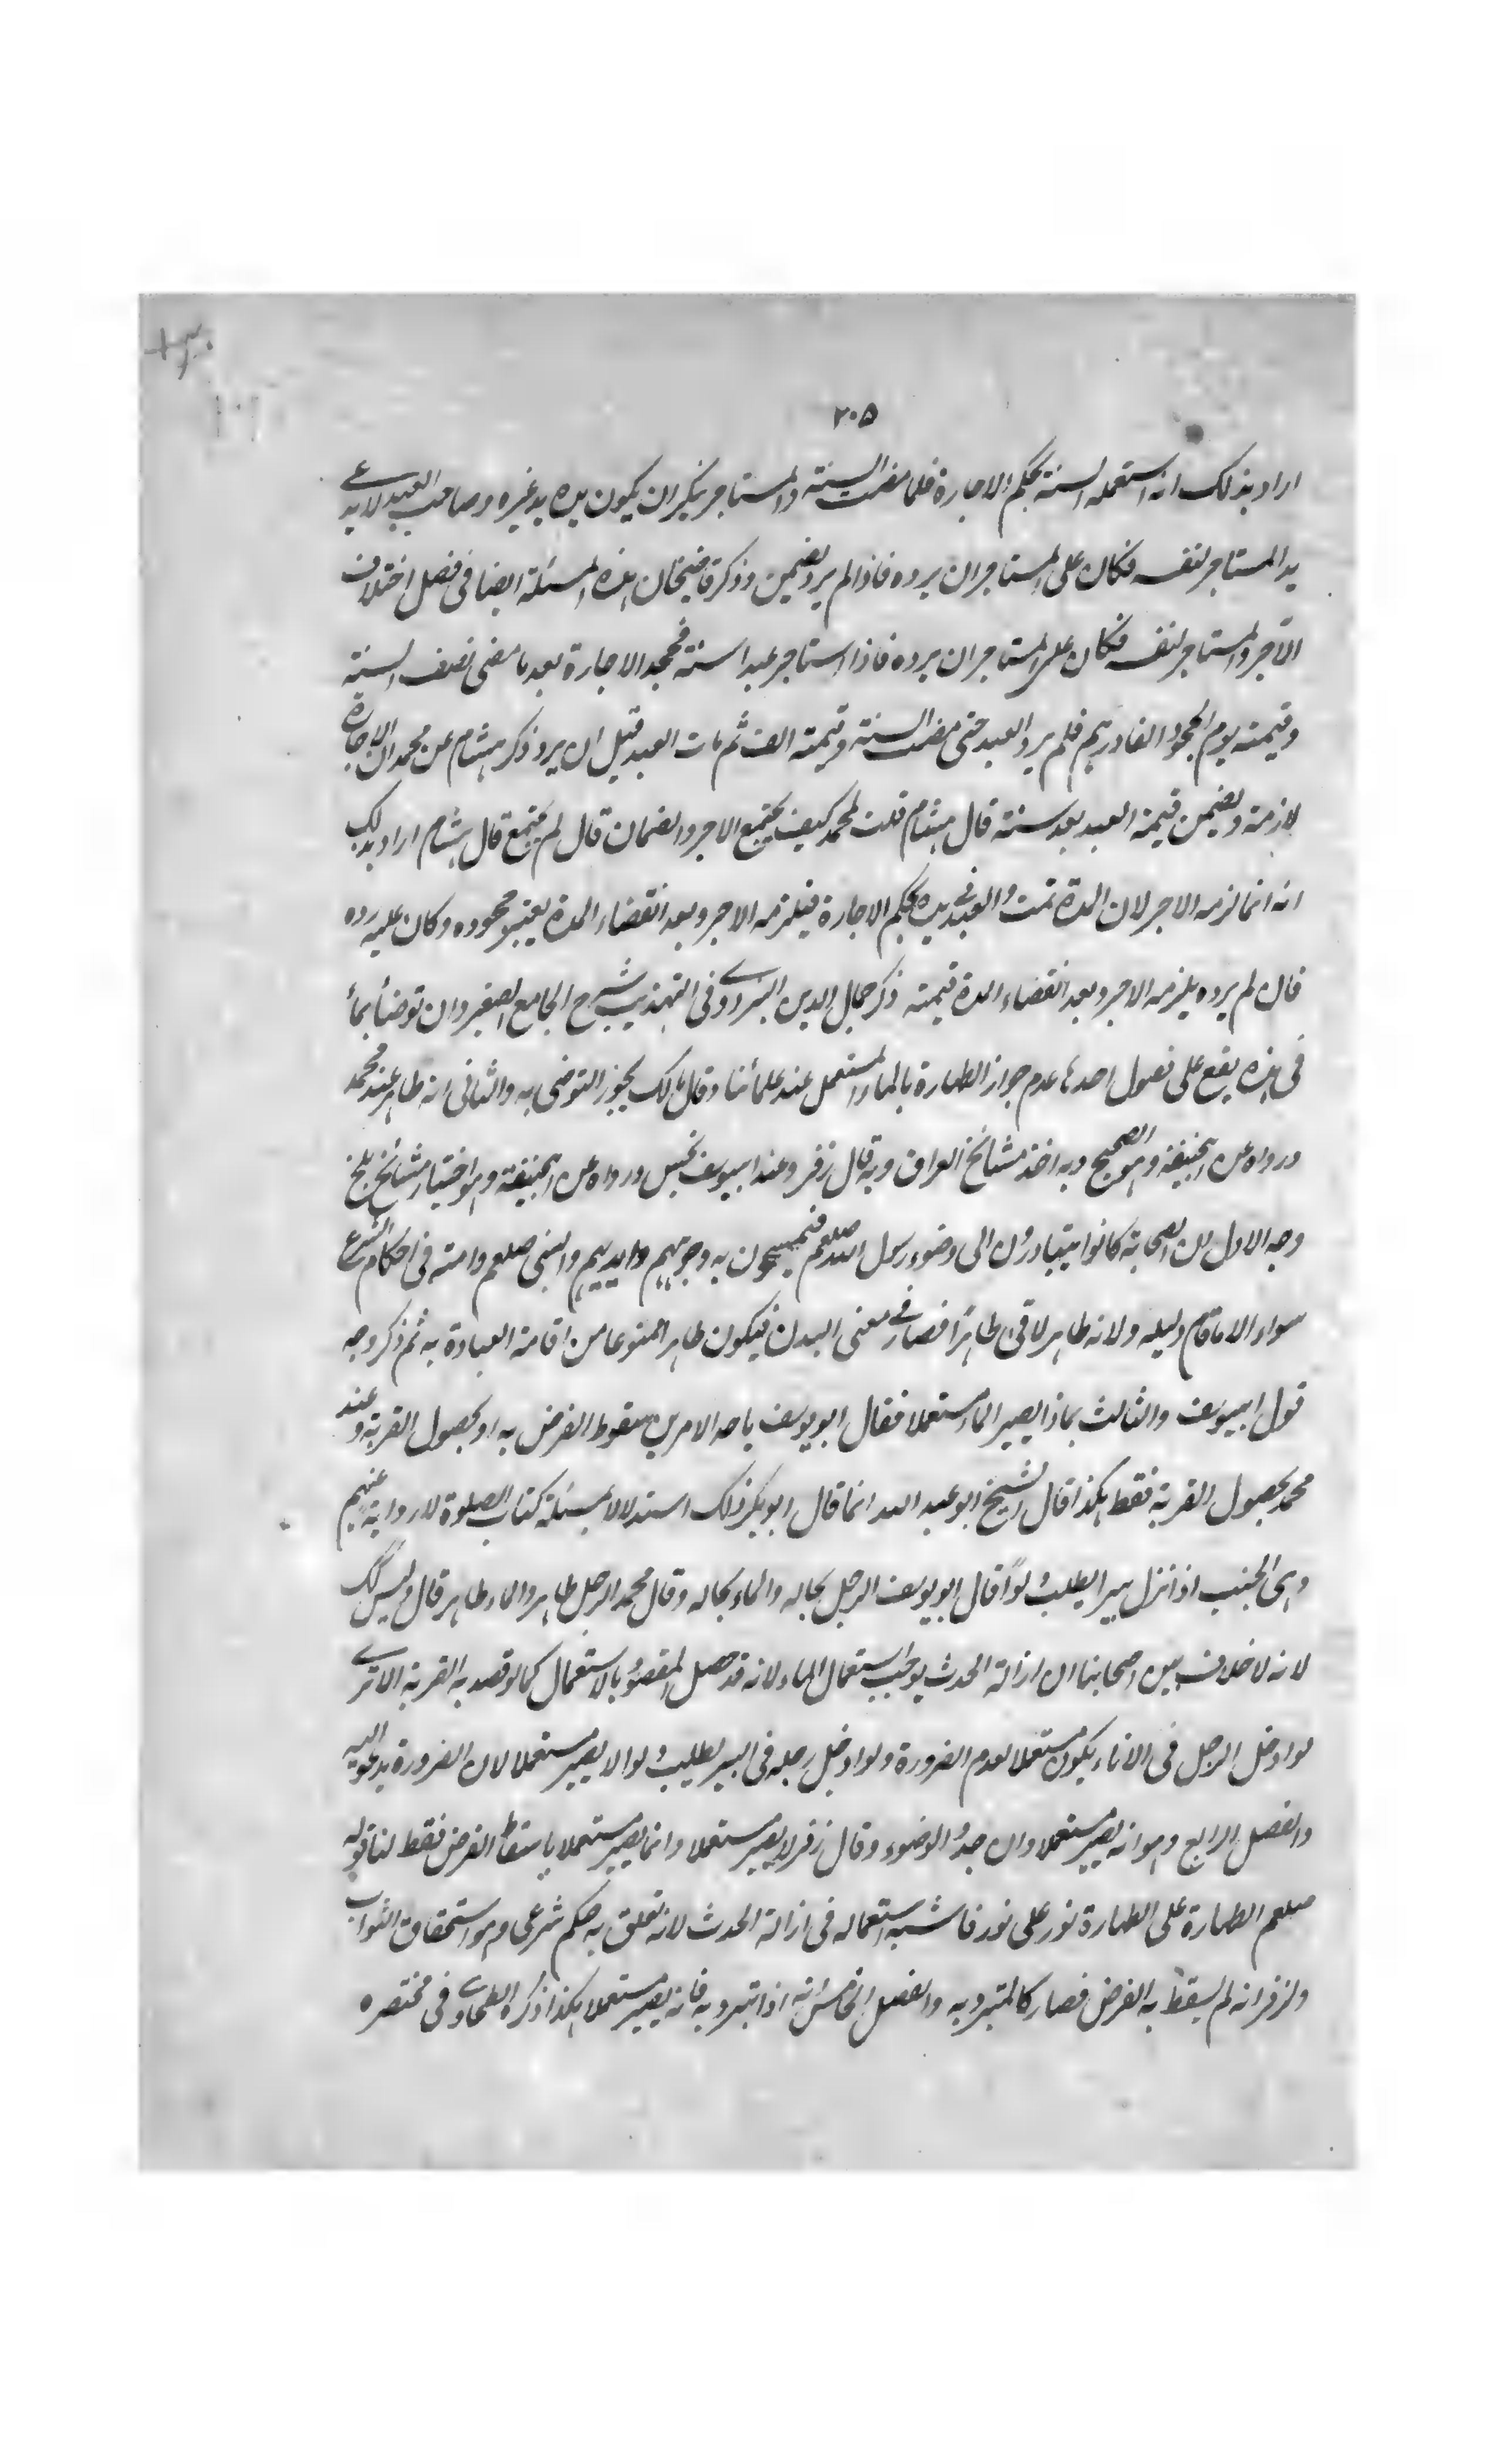 ٢٠٥
اراد بذلك انه استعمله السنة بحكم الاجارة فلما مضت السنة والمستاجر ينكر ان يكون يده يد غيره وصاحب العبد لا يدعى
يد المستاجر لنفسه فكان على المستاجر ان يرده فاذا لم يرد يضمن وذكر قاضيخان هذه المسئلة ايضا فى فصل اختلاف
الآجر والمستاجر لنفسه فكان على المستاجر ان يرده فاذا استاجر عبدا سنة فجحد الاجارة بعد ما مضى نصف السنة
وقيمته يوم الجحود الفا درهم فلم يرد العبد حتى مضت السنة وقيمته الف ثم مات العبد قبل ان يرد ذكر هشام عن محمد ان الاجارة
لازمة ويضمن قيمة العبد بعد سنة قال هشام قلت لمحمد كيف يجتمع الاجر والضمان قال لم يجتمع قال هشام اراد بذلك
انه انما لزمه الاجر لان المدة تمت والعبد فى يده بحكم الاجارة فيلزمه الاجر وبعد انقضاء المدة يعتبر جحوده وكان عليه رده
فان لم يرده يلزمه الاجر وبعد انقضاء المدة قيمته ذكر جمال الدين البزدوى فى التهذيب شرح الجامع الصغير وان توضأ بماء
فى هذه يقع على فصول احدها عدم جواز الطهارة بالماء المستعمل عند علمائنا وقال مالك يجوز التوضى به والثانى انه طاهر عند محمد
ورواه عن ابيحنيفة وهو الصحيح وبه اخذ مشائخ العراق وبه قال زفر وعند ابييوسف نجس ورواه عن ابيحنيفة وهو اختيار مشائخ بلخ
وجه الاول ان الصحابة كانوا يتبادرون الى وضوء رسول الله صلعم فيمسحون به وجوههم وايديهم والنبى صلعم وامته فى احكام الشرع
سواء الا ما قام دليله ولانه طاهر لاقى طاهرًا فصار فى معنى البدن فيكون طاهرا ممنوعا من اقامة العبادة به ثم ذكر وجه
قول ابييوسف والثالث بماذا يصير الماء مستعملا فقال ابو يوسف باحد الامرين سقوط الفرض به او بحصول القربة وعند
محمد بحصول القربة فقط هكذا قال الشيخ ابو عبد الله انما قال ابوبكر ذلك استدلالا بمسئلة كتاب الصلوة لا رواية عنهم
وهى الجنب اذا نزل بيرا يطلب دلوًا قال ابو يوسف الرجل بحاله والماء بحاله وقال محمد الرجل طاهر والماء طاهر قال وليس كذلك
لانه لا خلاف بين اصحابنا ان ازالة الحدث يوجب استعمال الماء لانه قد حصل المقصود بالاستعمال كما لو قصد به القربة الا ترى
لو ادخل الرجل فى الاناء يكون مستعملا لعدم الضرورة ولو ادخل رجله فى البير لطلب دلو لا يصير مستعملا لان الضرورة يدعو اليه
والفصل الرابع وهو انه يصير مستعملا وان جدد الوضوء وقال زفر لا يصير مستعملا وانما يصير مستعملا باسقاط الفرض فقط لنا قوله
صلعم الطهارة على الطهارة نور على نور فاشبه استعماله فى ازالة الحدث لانه تعلق به حكم شرعى وهو استحقاق الثواب
ولزفر انه لم يسقط به الفرض فصار كالمتبرد به والفصل الخامس انه اذا تبرد به فانه يصير مستعملا هكذا ذكره الطحاوى فى مختصره